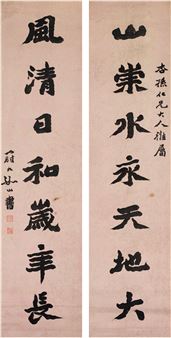 山崇水永天地大
杏孫仁兄大人雅屬
風清日和歲年長